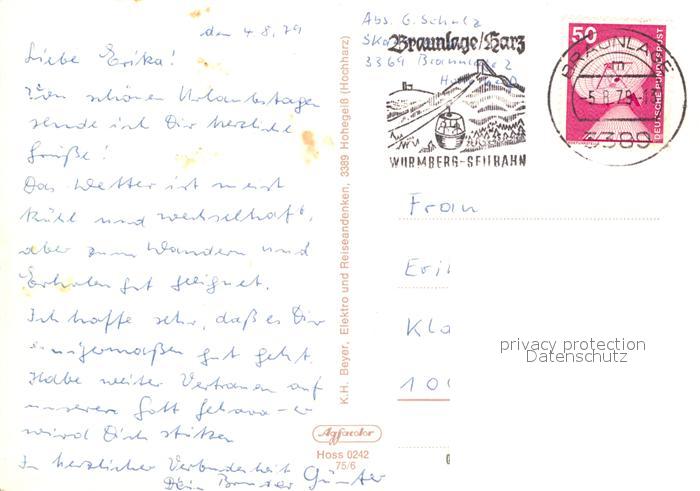 den 4.8.79
Liebe Erika!
Von schönen Urlaubstagen
sende ich Dir herzliche
Grüße!
Das Wetter ist meist
kühl und wechselhaft,
aber zum Wandern und
Erholen gut geeignet.
Ich hoffe sehr, daß es Dir
einigermaßen gut geht.
Habe weiter Vertrauen auf
unseren Gott Jehova - er
wird Dich stützen
In herzlicher Verbundenheit
Dein Bruder Günter
K.H. Beyer, Elektro und Reiseandenken, 3389 Hohegeiß (Hochharz)
Agfacolor
Hoss 0242
75/6
Abs. G. Scholz
3369 Braunlage 2
Braunlage/Harz
WURMBERG-SEILBAHN
50
DEUTSCHE BUNDESPOST
BRAUNLAGE
-5.8.79
3389
Frau
Eri
Kla
10
privacy protection
Datenschutz